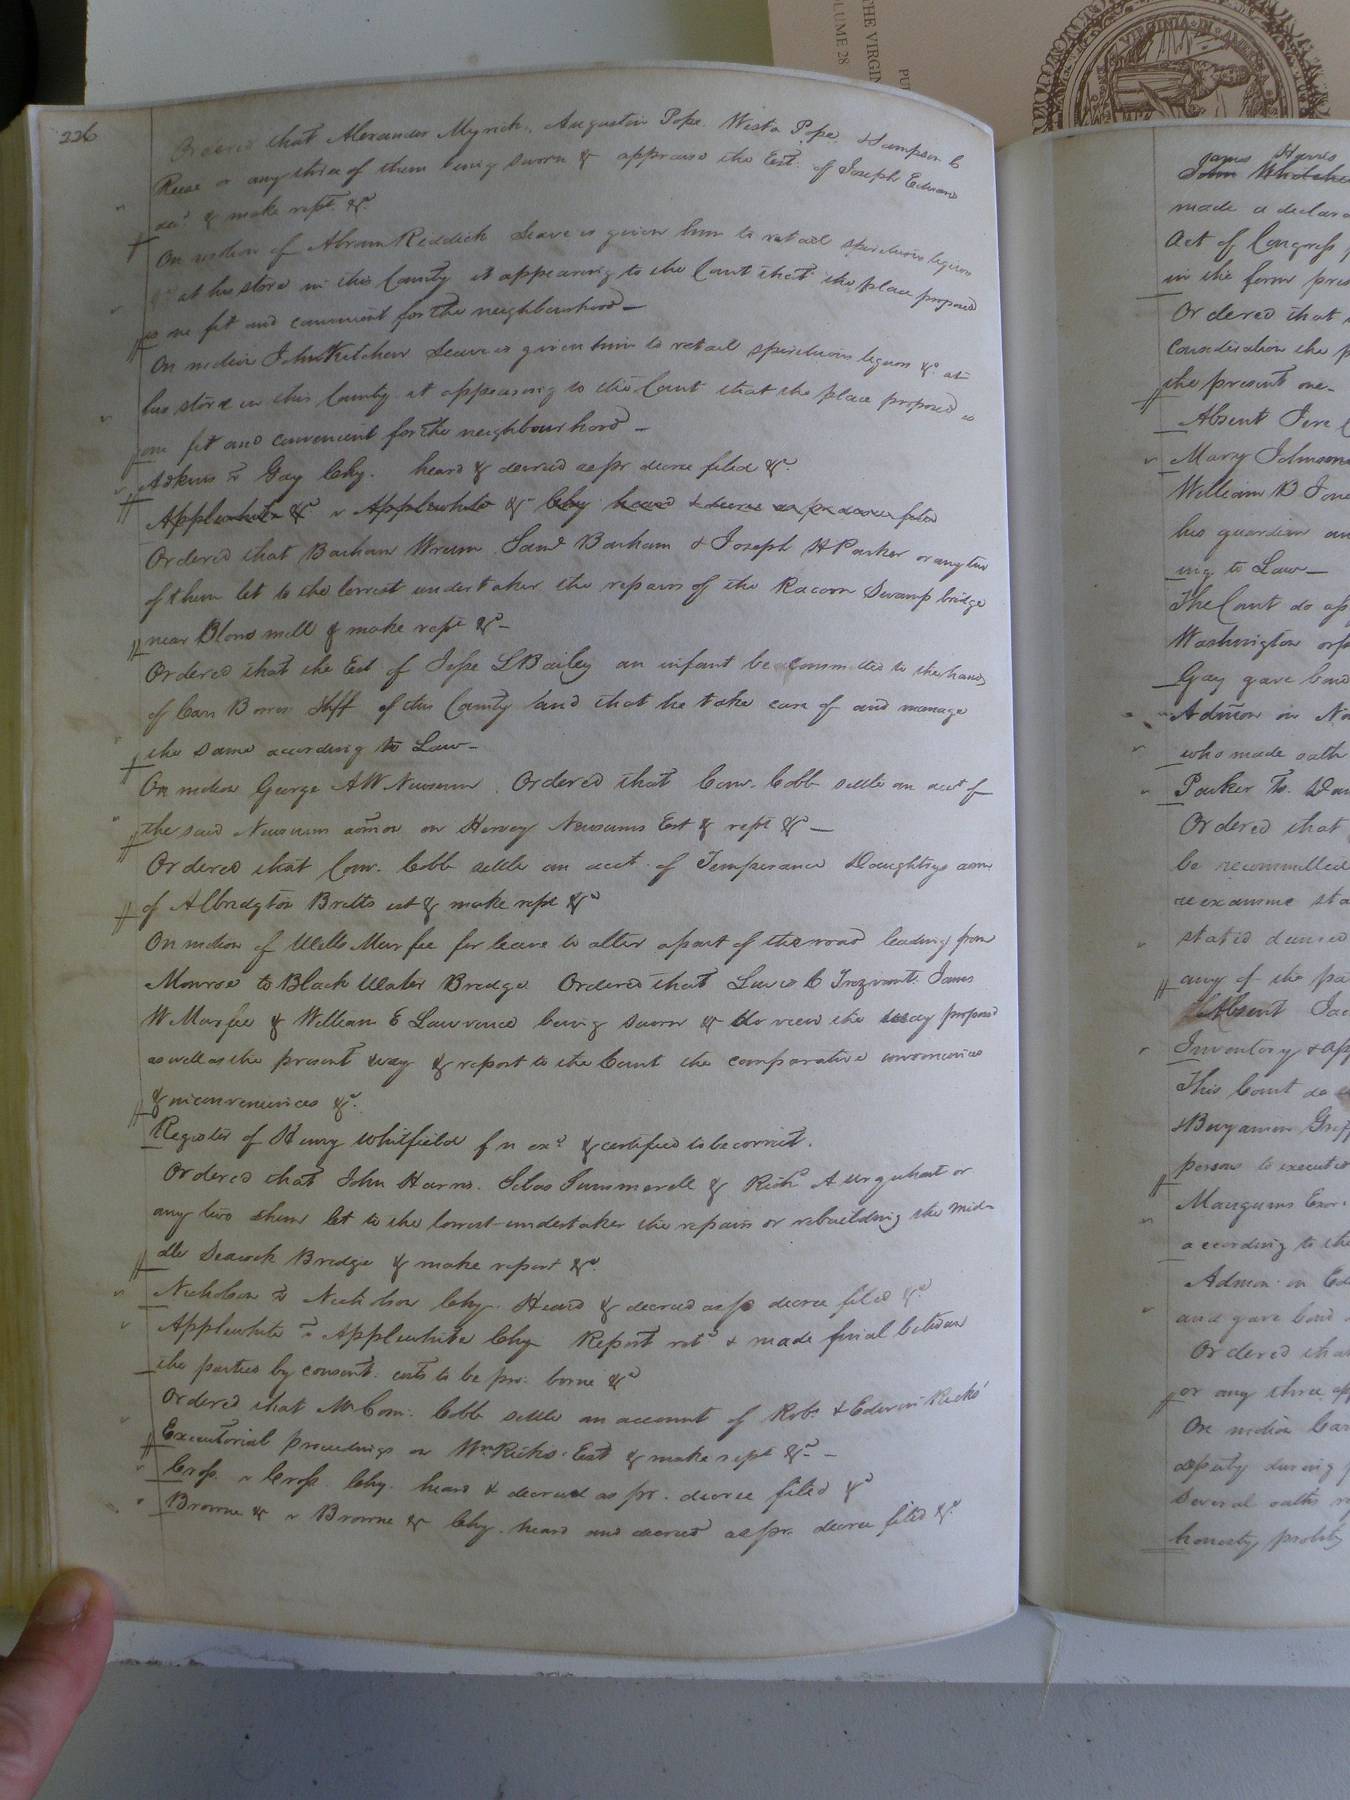 226
Ordered that Alexander Myrick, Augustin Pope. Wiste Pope & Sampson C
Reese or any three of them being sworn &c appraise the Est. of Joseph Edwards
decd & make rept. &c.
On motion of Abram Riddick Leave is given him to retail spirituous liquors
&c at his store in this County it appearing to the Court that the place proposed
is one fit and convenient for the neighbourhood—
On motion John Kitchen Leave is given him to retail spirituous liquors &c. at
his store in this County it appearing to the Court that the place proposed is
one fit and convenient for the neighbourhood—
Adkins vs Gay Chy. heard & decreed as pr decree filed &c.
Applewhite &c v Applewhite &c Chy heard & decree as pr decree filed
Ordered that Barham Wrenn Saml Barham & Joseph H Parker or any two
of them let to the lowest undertaker the repairs of the Racoon Swamp bridge
near Blows mill & make rept &c—
Ordered that the Est of Jesse L Bailey an infant be committed to the hands
of Carr Bowers Shff of this County and that he take care of and manage
the same according to Law—
On motion George AW Newsum. Ordered that Comr. Cobb settle an acct of
the said Newsums admon on Harvey Newsums Est & rept &c—
Ordered that Comr. Cobb settle an acct. of Temperance Doughtrys adm
of Albridgton Britts est & make rept &c
On motion of Wells Murfee for leave to alter apart of the road leading from
Monroe to Black Water Bridge Ordered that Lewis C Trezvant. James
W Murfee & William E Lawrence being sworn &c do view the way proposed
as well as the present way & report to the Court the comparative conveniences
& inconveniences &c.
Register of Henry Whitfield f n exd & certified to be correct.
Ordered that John Harris. Silas Summerell & Richd A Urquhart or
any two them let to the lowest undertaker the repairs or rebuilding the mid-
dle Seacock Bridge & make report &c
Nicholson vs Nicholson Chy. Heard & decreed as pr decree filed &c
Applewhite vs Applewhite Chy Report retd & made final between
the parties by consent. costs to be pr. borne &c
Ordered that Mr Com. Cobb settle an account of Robt & Edwin Ricks'
Executorial proceedings on Wm Ricks Est & make rept &c—
Cross v Cross Chy. heard & decreed as pr. decree filed &c
Browne &c v Browne &c Chy. heard and decreed as pr. decree filed &c
PU
THE VIRGIN
VOLUME 28
VIRGINIA IN AMER
James Harris
John
made a declara
Act of Congress
in the form pres
Ordered that
consideration the p
the present one.
Absent
Mary Johnson
William B Jone
his guardian an
ing to Law—
The Court do ap
Washington orp
Gay gave bond
Admon on No
who made oath
Parker vs. Da
Ordered that
be recommitted
reexamine sta
stated
any of the pa
Absent Jac
Inventory & ap
This Court do
& Benjamin Grif
person to execute
Mangums Exor.
according to the
Admon on Ed
and gave bond
Ordered that
or any three
On motion Car
deputy during
Several oaths
honesty, probity